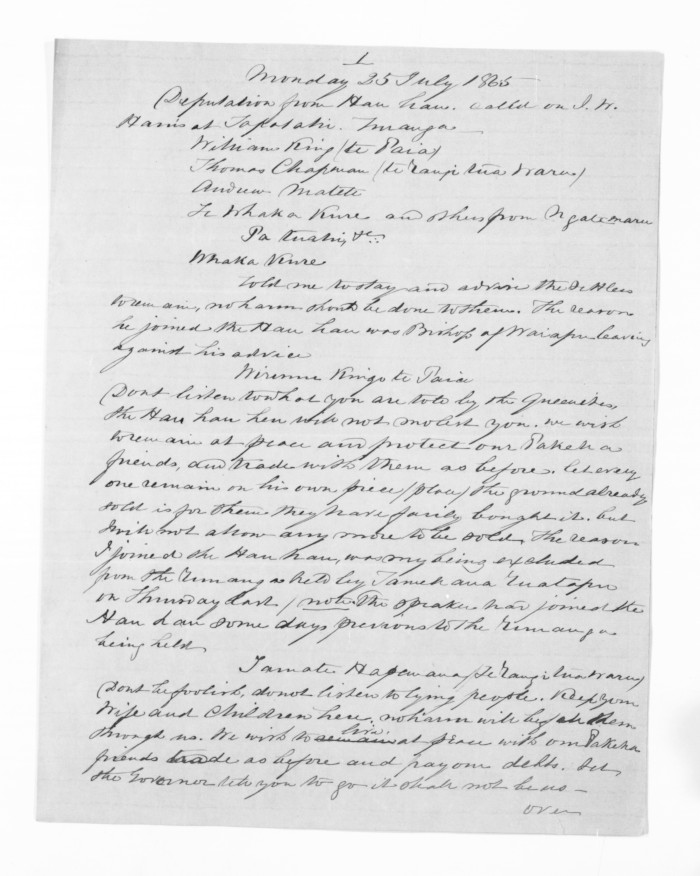 1
Monday 25 July 1865
Deputation from Hau hau. called on J. W.
Harris at Tapatahi. Turanga
William King (te Paia)
Thomas Chapman (te rangi tua waru)
Andrew Matete
Te Whaka Kure and others from Ngatemaru
Pa tuahi, &c..
Whaka Kure
Told me to stay and advise the Settlers
to remain, no harm should be done to them. The reason
he joined the Hau hau was Bishop of Waiapu leaving
against his advice
Wiremu Kingi te Paia
Dont listen to what you are told by the Queenites,
the Hau hau here will not molest you. We wish
to remain at peace and protect our Pakeha
friends, and trade with them as before. let every
one remain on his own piece (place) the ground already
sold is for them they have fairly bought it. but
I will not allow any more to be sold. The reason
I joined the Hau hau, was my being excluded
from the runanga held by Tamehana Ruatapu
on Thursday last (note the speaker had joined the
Hau hau some days previous to the runanga
being held
Tamati Hapimana (te rangi tua waru)
Dont be foolish, do not listen to lying people. Keep your
Wife and Children here. no harm will befall them
through us. We wish to live at peace with our Pakeha
friends trade as before and pay our debts. let
the Governor tell you to go it shall not be us —
over